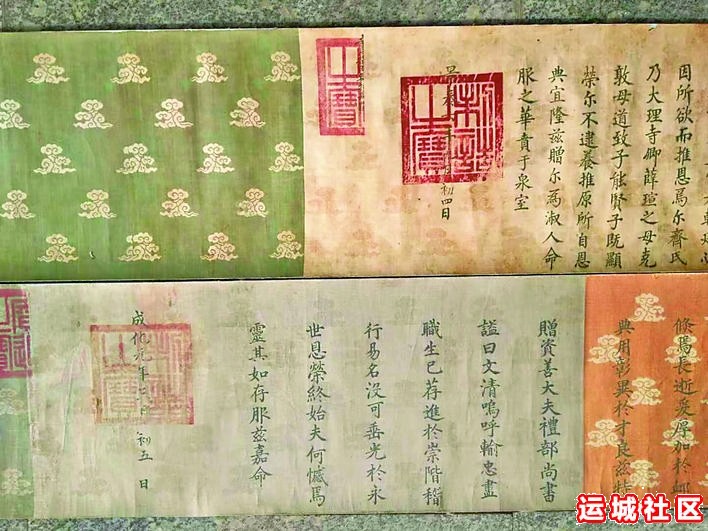 因所欲而推恩焉尔齐氏
乃大理寺卿薛瑄之母克
敦母道致子能賢子既顯
榮尔不逮養推原所自恩
典宜隆兹贈尔為淑人命
服之華賁于泉室
初四日
制誥之寶
之寶
條焉長逝爰厚加於卹
典用彰異於才良兹特
贈資善大夫禮部尚書
謚曰文清嗚呼輸忠盡
職生已荐進於崇階稽
行易名沒可垂光於永
世恩榮終始夫何憾焉
靈其如存服兹嘉命
成化元年 初五日
制誥之寶
运城社区